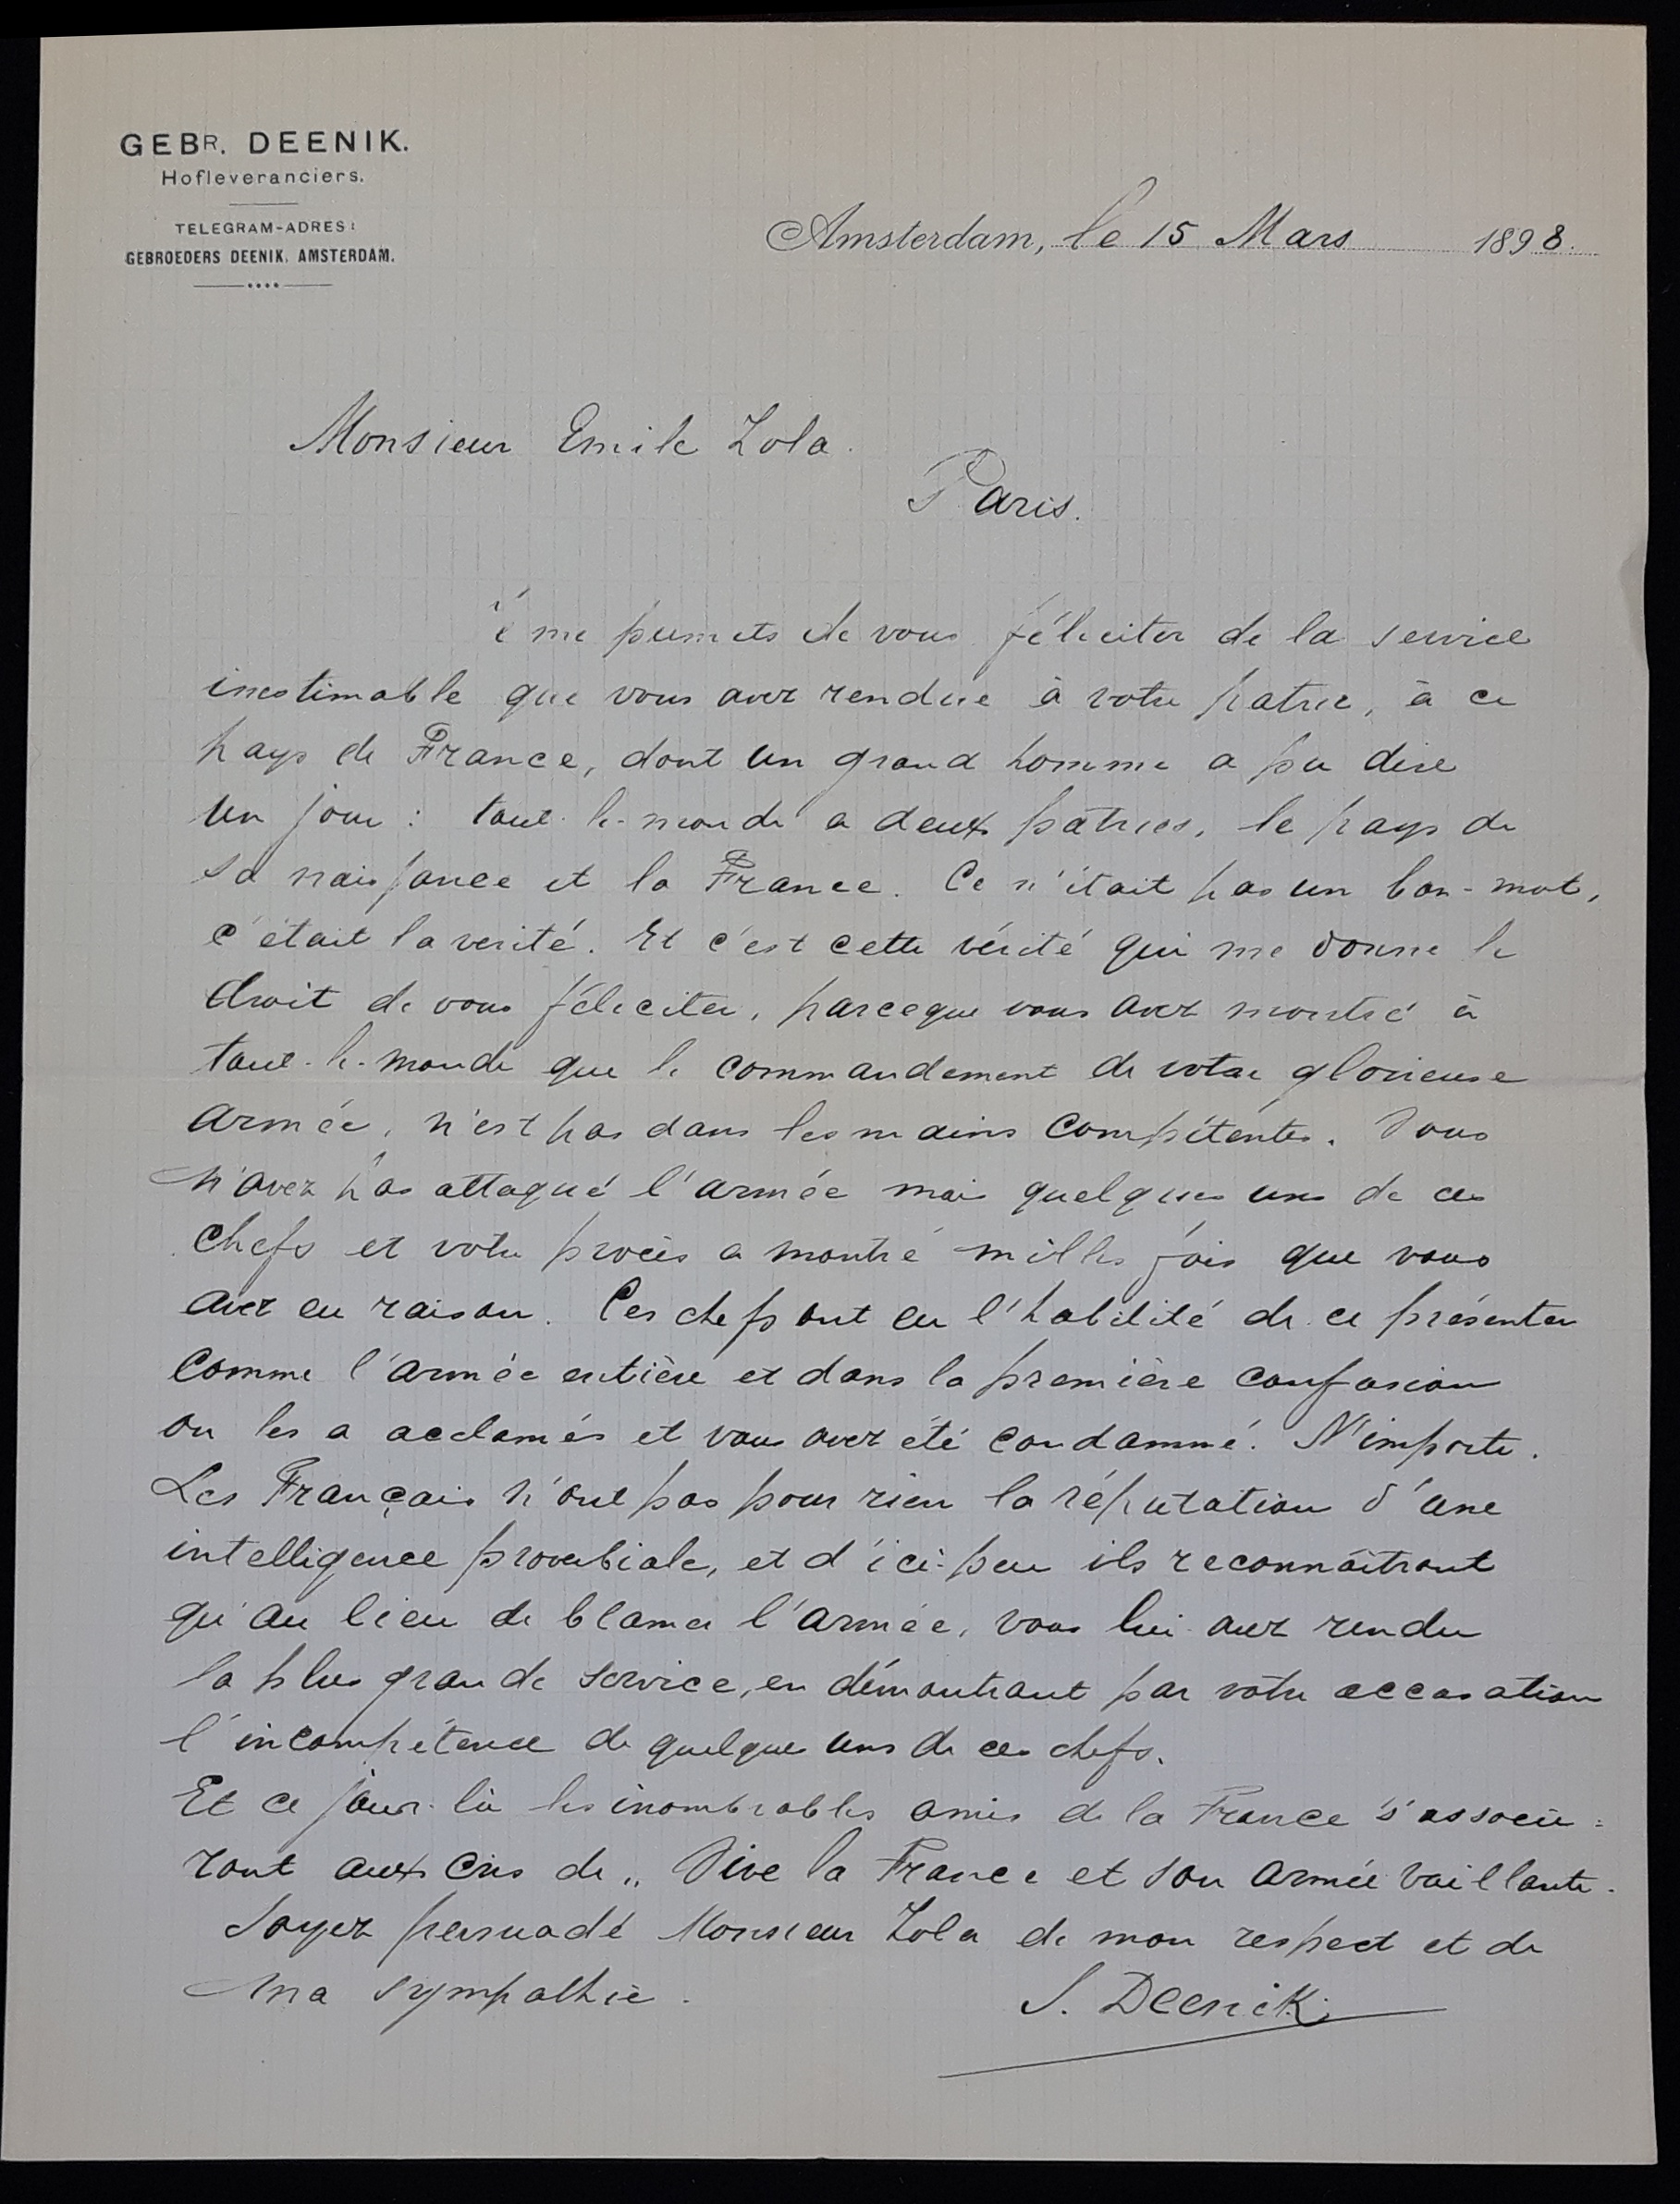 GEBR. DEENIK.
Hofleveranciers.
TELEGRAM-ADRES:
GEBROEDERS DEENIK. AMSTERDAM.
Amsterdam, le 15 Mars 1898.
Monsieur Emile Zola.
Paris.
me permets de vous féliciter de la service
inestimable que vous avez rendue à votre patrie, à ce
pays de France, dont un grand homme a pu dire
un jour : tout-le-monde a deux patries, le pays de
sa naissance et la France. Ce n'était pas un bon-mot,
c'était la verité. Et c'est cette vérité qui me donne le
droit de vous féliciter, parceque vous avez montré à
tout-le-monde que le commandement de votre glorieuse
armée, n'est pas dans les mains compétentes. Vous
n'avez pas attaqué l'armée mais quelques uns de ces
chefs et votre procès a montré milles fois que vous
avez eu raison. Ces chefs ont eu l'habilité de ce présenter
comme l'armée entière et dans la première confusion
on les a acclamés et vous avez été condammé. N'importe.
Les Français n'ont pas pour rien la réputation d'une
intelligence proverbiale, et d'ici-peu ils reconnaîtront
qu'au lieu de blamer l'armée, vous lui avez rendu
la plus grande service, en démontrant par votre accusation
l'incompétence de quelques uns de ces chefs.
Et ce jour-là les inombrables amis de la France s'associe=
ront aux cris de „ Vive la France et son armée vaillante.
Soyez persuadé Monsieur Zola de mon respect et de
ma sympathie.
S. Deenik.